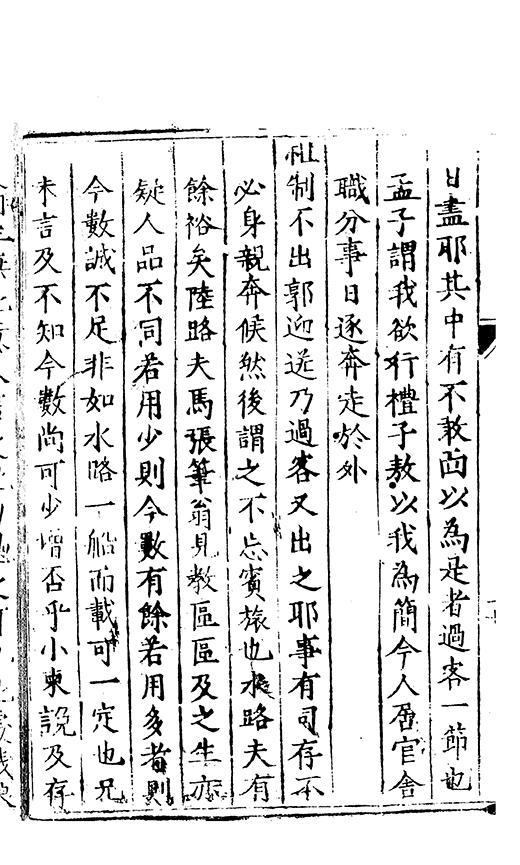 日盡耶其中有不敢面以為是者過客一節也
孟子謂我欲行禮子敖以我為簡今人居官舍
職分事日逐奔走於外
祖制不出郭迎送乃過客又出之耶事有司存不
必身親奔候然後謂之不忘賓旅也水路夫有
餘裕矣陸路夫馬張筆翁見教區區及之生亦
疑人品不同若用少則今數有餘若用多者則
今數誠不足非如水路一船而載可一定也兄
未言及不知今數尚可少增否乎小柬說及存